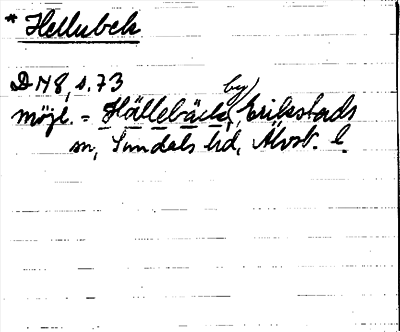 * Hellubek
DN 8, s. 73
möjl. = Hällebäck, by, Erikstads
sn, Sundals hd, Älvsb. l.